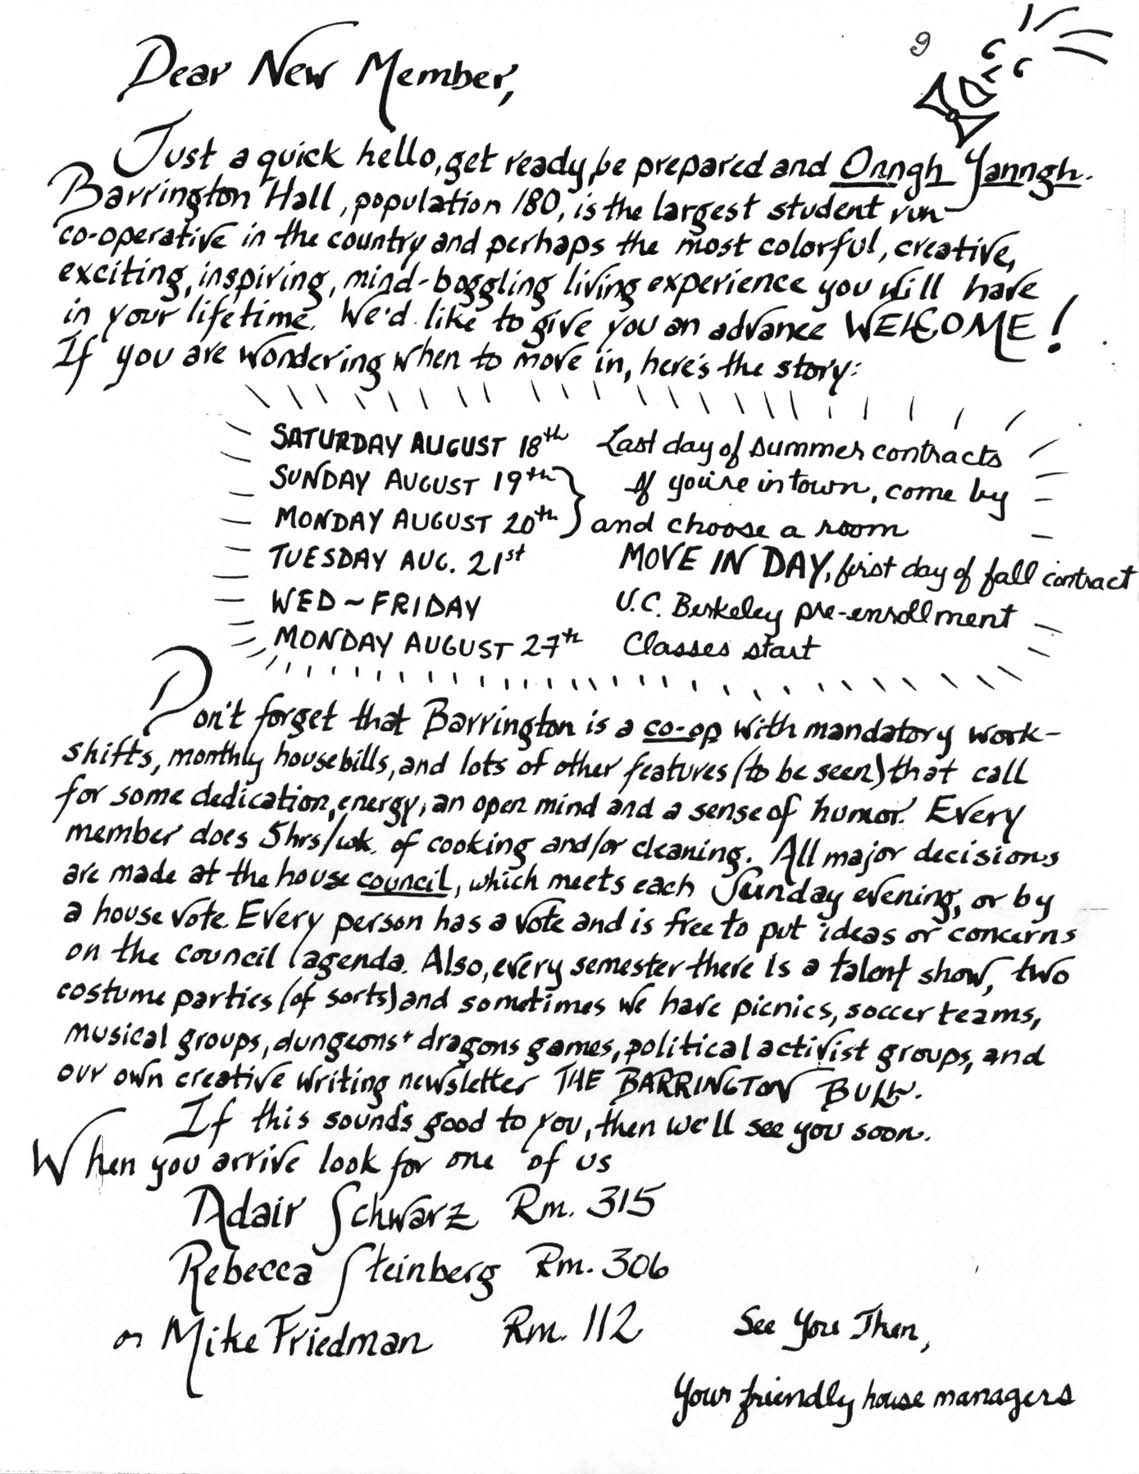 9
Dear New Member,
Just a quick hello, get ready, be prepared and Onngh Yanngh.
Barrington Hall, population 180, is the largest student run
co-operative in the country and perhaps the most colorful, creative,
exciting, inspiring, mind-boggling living experience you will have
in your lifetime. We'd like to give you an advance WELCOME!
If you are wondering when to move in, here's the story:
SATURDAY AUGUST 18th Last day of summer contracts
SUNDAY AUGUST 19th } If you're in town, come by
MONDAY AUGUST 20th } and choose a room
TUESDAY AUG. 21st MOVE IN DAY, first day of fall contract
WED ~ FRIDAY U.C. Berkeley pre-enrollment
MONDAY AUGUST 27th Classes start
Don't forget that Barrington is a co-op with mandatory work-
shifts, monthly housebills, and lots of other features (to be seen) that call
for some dedication, energy, an open mind and a sense of humor. Every
member does 5hrs/wk. of cooking and/or cleaning. All major decisions
are made at the house council, which meets each Sunday evening, or by
a house vote. Every person has a vote and is free to put ideas or concerns
on the council agenda. Also, every semester there is a talent show, two
costume parties (of sorts) and sometimes we have picnics, soccer teams,
musical groups, dungeons + dragons games, political activist groups, and
our own creative writing newsletter THE BARRINGTON BULL.
If this sounds good to you, then we'll see you soon.
When you arrive look for one of us
Adair Schwarz Rm. 315
Rebecca Steinberg Rm. 306
or Mike Friedman Rm. 112 See You Then,
Your friendly house managers